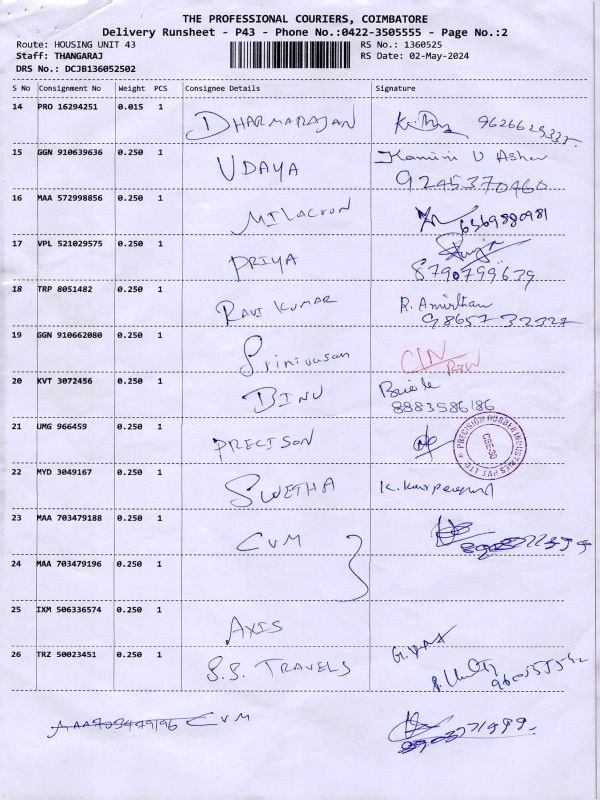 THE PROFESSIONAL COURIERS, COIMBATORE
Delivery Runsheet - P43 - Phone No.:0422-3505555 - Page No.:2
Route: HOUSING UNIT 43 RS No.: 1360525
Staff: THANGARAJ RS Date: 02-May-2024
DRS No.: DCJB136052502
S No Consignment No Weight PCS Consignee Details Signature
14 PRO 16294251 0.015 1 DHARMARAJAN
15 GGN 910639636 0.250 1 UDAYA Kamini U Asher
9245370460
16 MAA 572998856 0.250 1 MILACRON 6369880981
17 VPL 521029575 0.250 1 PRIYA
8790799639
18 TRP 8051482 0.250 1 RAVI KUMAR R. Amirthan
98657 32327
19 GGN 910662080 0.250 1 Srinivasan
20 KVT 3072456 0.250 1 BINU
8883586186
21 UMG 966459 0.250 1 PRECISON
PRECISION RUBBER INDUSTRIES PVT LTD
CBE-30
22 MYD 3049167 0.250 1 SWETHA
23 MAA 703479188 0.250 1 CUM
24 MAA 703479196 0.250 1
25 IXM 506336574 0.250 1 AXIS
26 TRZ 50023451 0.250 1 S.S. TRAVELS
CVM